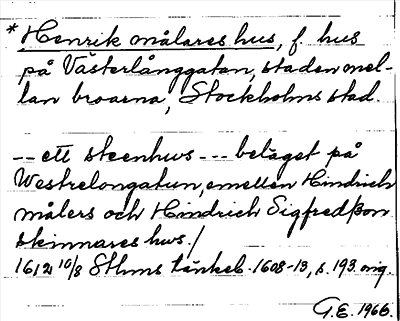 *Henrik målares hus, f. hus
på Västerlånggatan, staden mel-
lan broarna, Stockholms stad.
-- ett steenhws --- beläget på
Westrelongatun, emellen Hindrich
målers och Hindrich Sigfredßon
skinnares hws./
1612 10/8 Sthms tänkeb. 1608-13, s. 193 orig.
G.E. 1966.